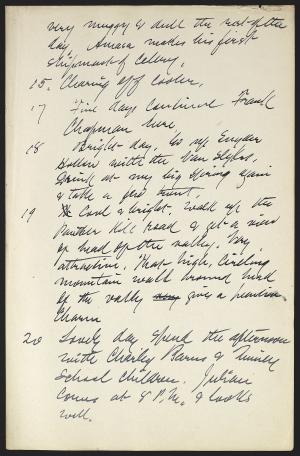 very muggy & dull the rest of the
day. Amasa makes his first
shipment of Celery.
15. Clearing off cooler.
17 Fine days continue Frank
Chapman here.
18 Bright day, Go up Snyder
Hollow with the Van
Drink at my big spring again
& take a few trout.
19 Cool & bright. Walk up the
Panther Kill road & get a view
of head of the valley. Very
attractive. That high, circling
mountain wall around head
of the valley give a peculiar
Charm
20 Lovely day spend the afternoon
with Charley Barns &
School children. Julian
comes at 8 P.M. & looks
well.